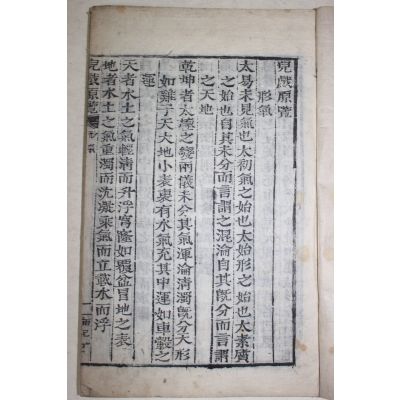 兒戲原覽
形氣
太易未見氣也太初氣之始也太始形之始也太素質
之始也自其未分而言謂之混淪自其旣分而言謂
之天地
乾坤者太極之變兩儀未分其氣渾淪清濁旣分天形
如雞子天大地小表裏有水氣充其中運如車轂之
運
天者水土之氣輕清而升浮穹隆如覆盆冒地之表
地者水土之氣重濁而沈凝乘氣而立載水而浮
兒戲原覽